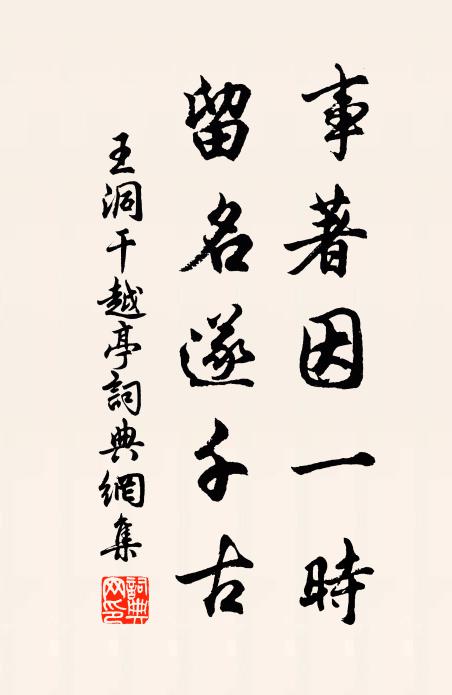 事著因一時
留名遂千古
王洞干越亭詞典網集
詞典
网印